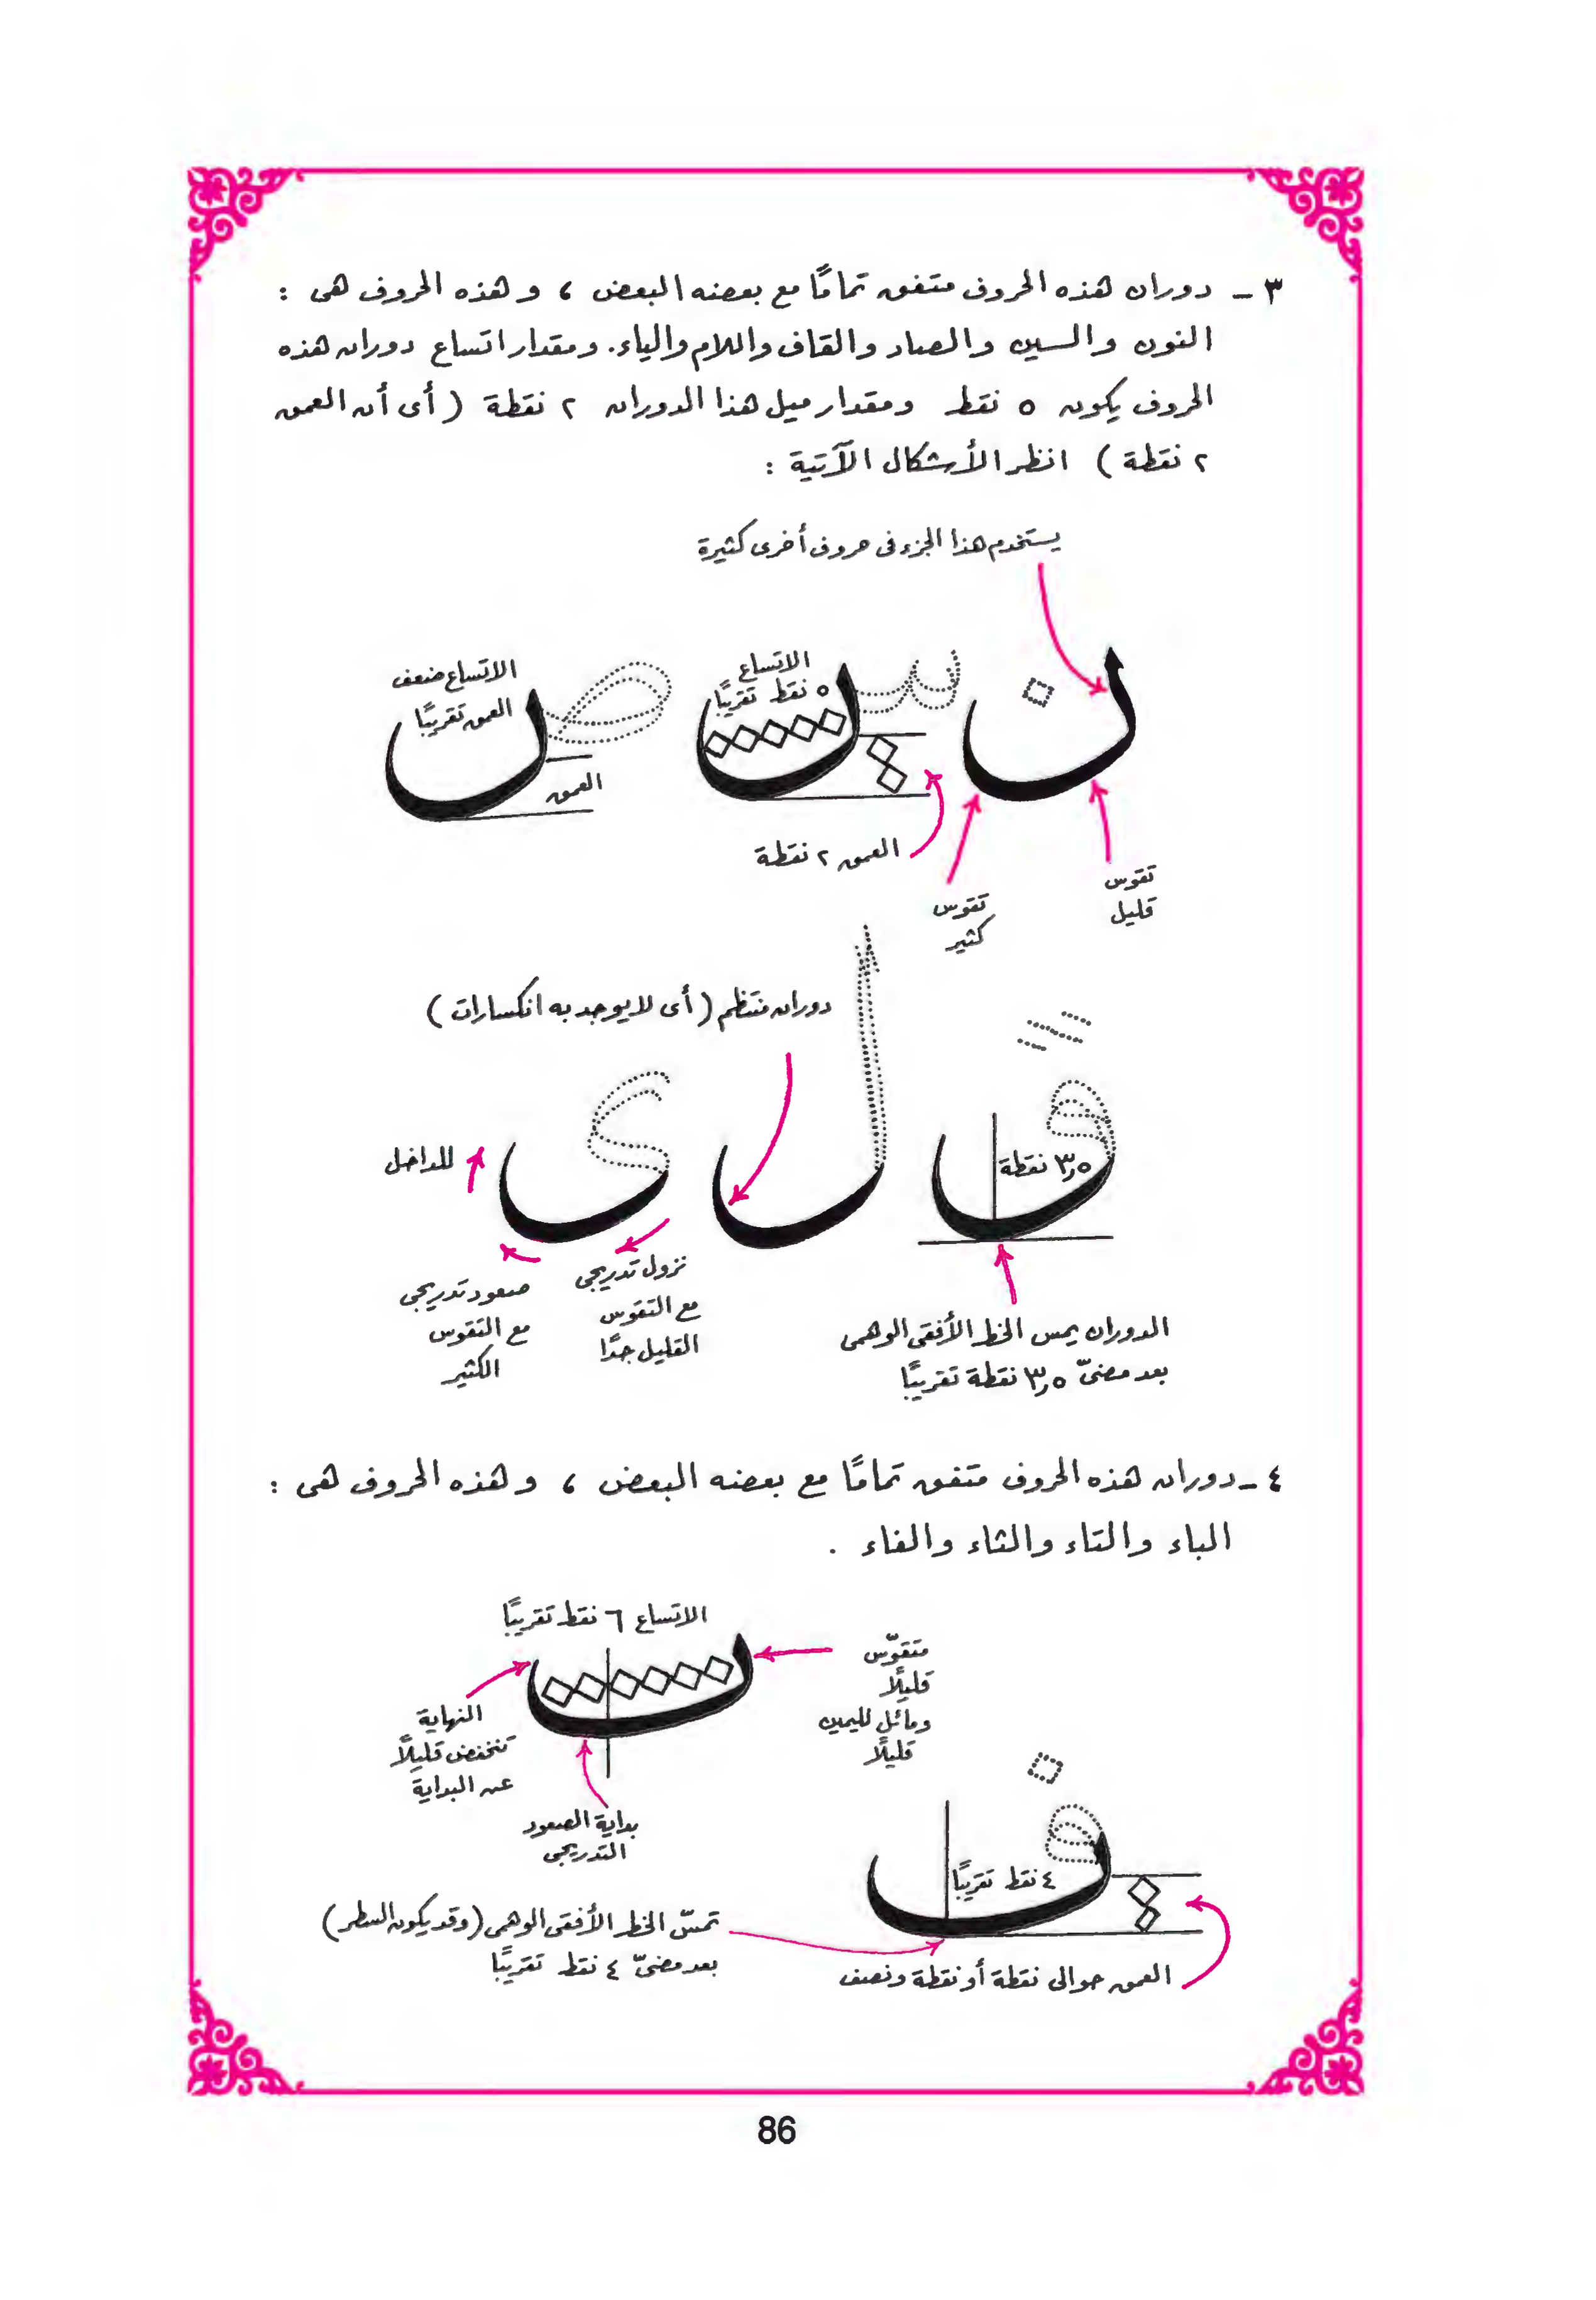 ٣ - دوران هذه الحروف متفق تمامًا مع بعضه البعض ، و هذه الحروف هى :
النون والسين والصاد والقاف واللام والياء. ومقدار اتساع دوران هذه
الحروف يكون ٥ نقط ومقدار ميل هذا الدوران ٢ نقطة ( أى أن العمق
٢ نقطة ) انظر الأشكال الآتية :
يستخدم هذا الجزء فى حروف أخرى كثيرة
ن
س
الاتساع
٥ نقط تقريبًا
ص
الاتساع ضعف
العمق تقريبًا
العمق
العمق ٢ نقطة
تقوس
قليل
تقوس
كثير
دوران منتظم ( أى لا يوجد به انكسارات )
ق
٣٫٥ نقطة
ل
ى
للداخل
نزول تدريجى
مع التقوس
القليل جدًا
صعود تدريجى
مع التقوس
الكثير
الدوران يمس الخط الأفقى الوهمى
بعد مضىّ ٣٫٥ نقطة تقريبًا
٤ - دوران هذه الحروف متفق تمامًا مع بعضه البعض ، و هذه الحروف هى :
الباء والتاء والثاء والفاء .
الاتساع ٦ نقط تقريبًا
متقوّس
قليلًا
ومائل لليمين
قليلًا
النهاية
تنخفض قليلًا
عن البداية
بداية الصعود
التدريجى
ف
٤ نقط تقريبًا
تمسّ الخط الأفقى الوهمى (وقد يكون السطر)
بعد مضىّ ٤ نقط تقريبًا
العمق حوالى نقطة أو نقطة ونصف
86